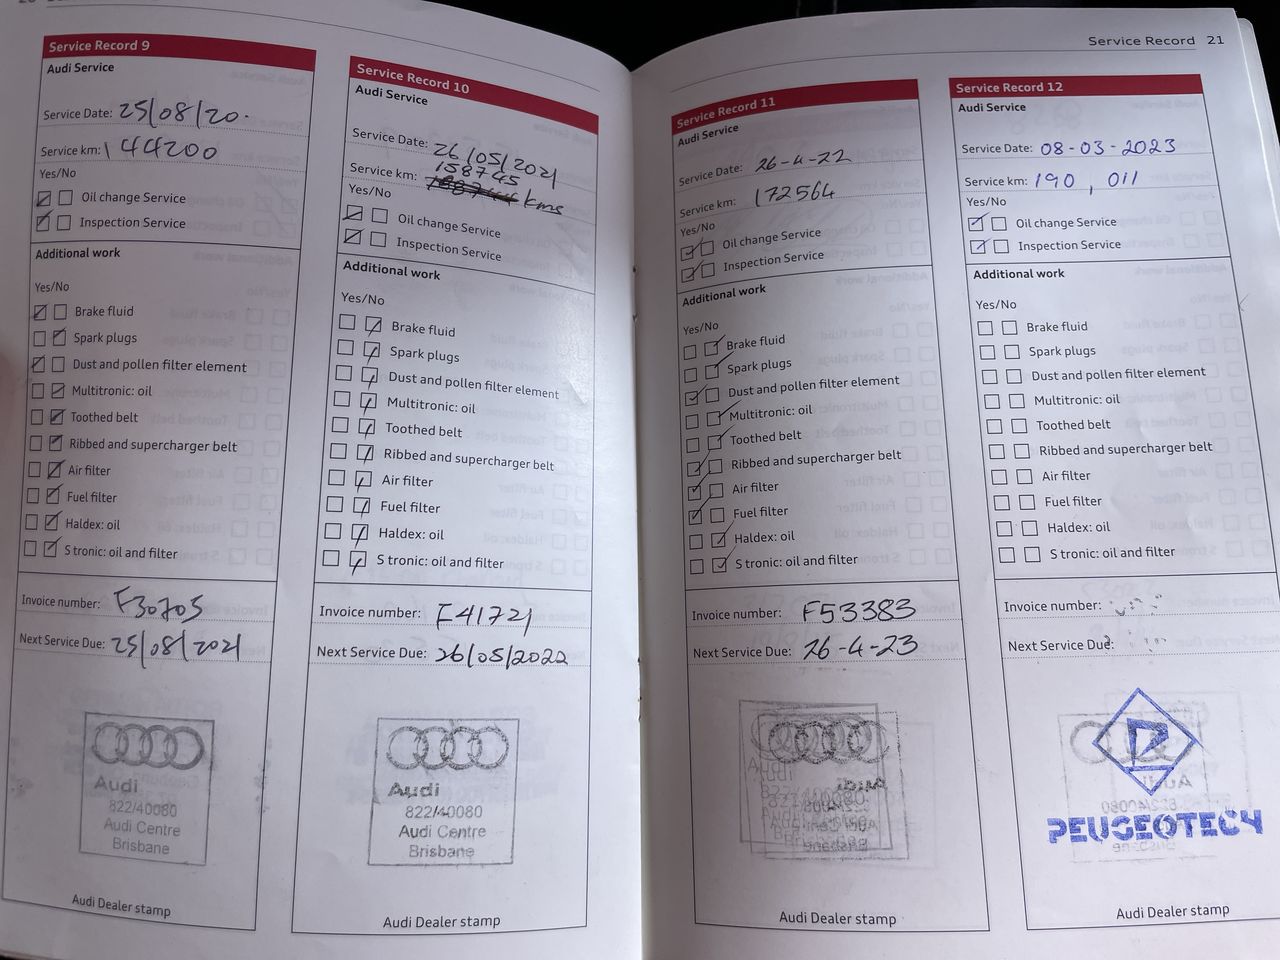 Service Record 9
Audi Service
Service Date: 25/08/20.
Service km: 144200
Yes/No
Oil change Service
Inspection Service
Additional work
Yes/No
Brake fluid
Spark plugs
Dust and pollen filter element
Multitronic: oil
Toothed belt
Ribbed and supercharger belt
Air filter
Fuel filter
Haldex: oil
S tronic: oil and filter
Invoice number: F30705
Next Service Due: 25/08/2021
Audi
822/40080
Audi Centre
Brisbane
Audi Dealer stamp
Service Record 10
Audi Service
Service Date: 26/05/2021
Service km: 158745 kms
Yes/No
Oil change Service
Inspection Service
Additional work
Yes/No
Brake fluid
Spark plugs
Dust and pollen filter element
Multitronic: oil
Toothed belt
Ribbed and supercharger belt
Air filter
Fuel filter
Haldex: oil
S tronic: oil and filter
Invoice number: F41721
Next Service Due: 26/05/2022
Audi
822/40080
Audi Centre
Brisbane
Audi Dealer stamp
Service Record 21
Service Record 11
Audi Service
Service Date: 26-4-22
Service km: 172564
Yes/No
Oil change Service
Inspection Service
Additional work
Yes/No
Brake fluid
Spark plugs
Dust and pollen filter element
Multitronic: oil
Toothed belt
Ribbed and supercharger belt
Air filter
Fuel filter
Haldex: oil
S tronic: oil and filter
Invoice number: F53383
Next Service Due: 26-4-23
Audi Dealer stamp
Service Record 12
Audi Service
Service Date: 08-03-2023
Service km: 190,011
Yes/No
Oil change Service
Inspection Service
Additional work
Yes/No
Brake fluid
Spark plugs
Dust and pollen filter element
Multitronic: oil
Toothed belt
Ribbed and supercharger belt
Air filter
Fuel filter
Haldex: oil
S tronic: oil and filter
Invoice number:
Next Service Due:
PEUGEOTECH
Audi Dealer stamp